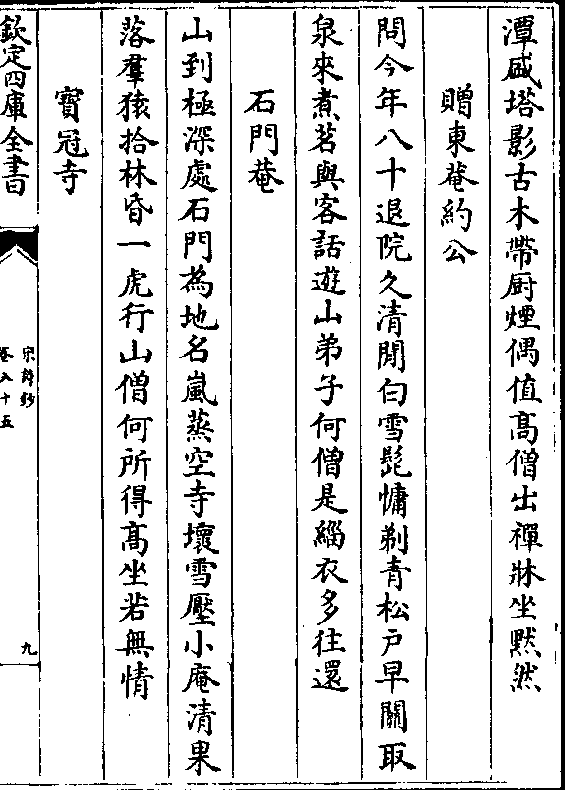 潭感塔影古木帶厨煙偶值髙僧出禪牀坐黙然
贈東菴約公
問今年八十退院久清閒白雪髭慵剃青松户早關取
泉來煮茗與客話遊山弟子何僧是緇衣多往還
石門菴
山到極深處石門為地名嵐蒸空寺壞雪壓小庵清果
落羣猿拾林昏一虎行山僧何所得髙坐若無情
寳冠寺
欽定四庫全書
宋詩鈔
卷八十五
九